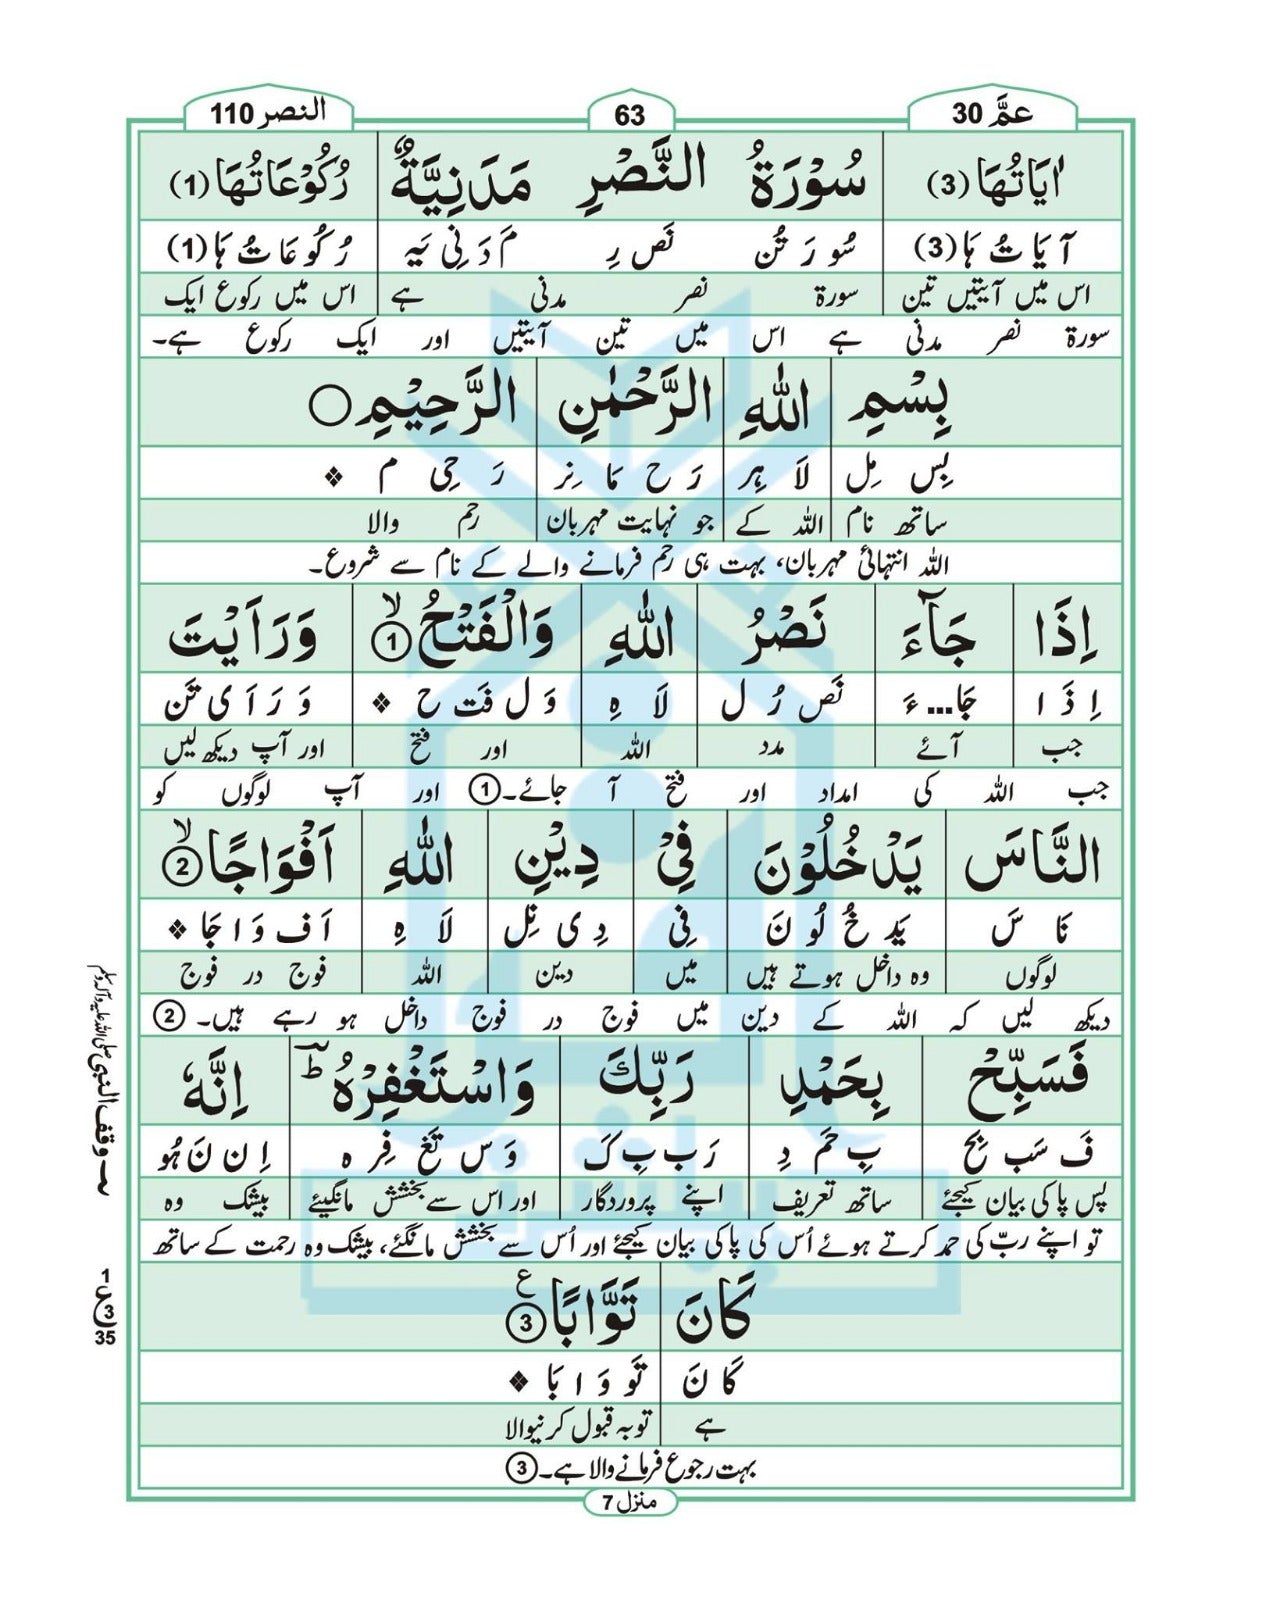 النصر 110 63 عمَّ 30
اٰيَاتُهَا (3) سُوْرَةُ النَّصْرِ مَدَنِيَّةٌ رُكُوْعَاتُهَا (1)
آ يَا تُ ہَا (3) سُو رَ تُن نَص رِ مَ دَ نِی یَہ رُ کُو عَا تُ ہَا (1)
اس میں آیتیں تین سورۃ نصر مدنی ہے اس میں رکوع ایک
سورۃ نصر مدنی ہے اس میں تین آیتیں اور ایک رکوع ہے۔
بِسْمِ اللّٰهِ الرَّحْمٰنِ الرَّحِيْمِ ○
بِس مِل لَا ہِر رَ ح مَا نِر رَ حِی م ❖
ساتھ نام اللہ کے جو نہایت مہربان رحم والا
اللہ انتہائی مہربان، بہت ہی رحم فرمانے والے کے نام سے شروع۔
اِذَا جَآءَ نَصْرُ اللّٰهِ وَالْفَتْحُ ۙ ① وَرَاَيْتَ
اِ ذَا جَا... ءَ نَص رُ ل لَا ہِ وَ ل فَت ح ❖ وَ رَ اَ ی تَن
جب آئے مدد اللہ اور فتح اور آپ دیکھ لیں
جب اللہ کی امداد اور فتح آ جائے۔ ① اور آپ لوگوں کو
النَّاسَ يَدْخُلُوْنَ فِيْ دِيْنِ اللّٰهِ اَفْوَاجًا ۙ ②
نَا سَ يَد خُ لُو نَ فِی دِ ی نِل لَا ہِ اَ ف وَ ا جَا ❖
لوگوں وہ داخل ہوتے ہیں میں دین اللہ فوج در فوج
دیکھ لیں کہ اللہ کے دین میں فوج در فوج داخل ہو رہے ہیں۔ ②
فَسَبِّحْ بِحَمْدِ رَبِّكَ وَاسْتَغْفِرْهُ ؕ اِنَّهٗ
فَ سَب بِح بِ حَم دِ رَب بِ کَ وَ س تَغ فِر ہ اِ ن نَ ہُو
پس پاکی بیان کیجئے ساتھ تعریف اپنے پروردگار اور اس سے بخشش مانگیئے بیشک وہ
تو اپنے ربّ کی حمد کرتے ہوئے اُس کی پاکی بیان کیجئے اور اُس سے بخشش مانگئے، بیشک وہ رحمت کے ساتھ
كَانَ تَوَّابًا ③ ع
کَا نَ تَو وَ ا بَا ❖
ہے توبہ قبول کرنیوالا
بہت رجوع فرمانے والا ہے۔ ③
منزل 7
وقف النبی صلی اللہ علیہ وآلہ وسلم
1
ع 3
35